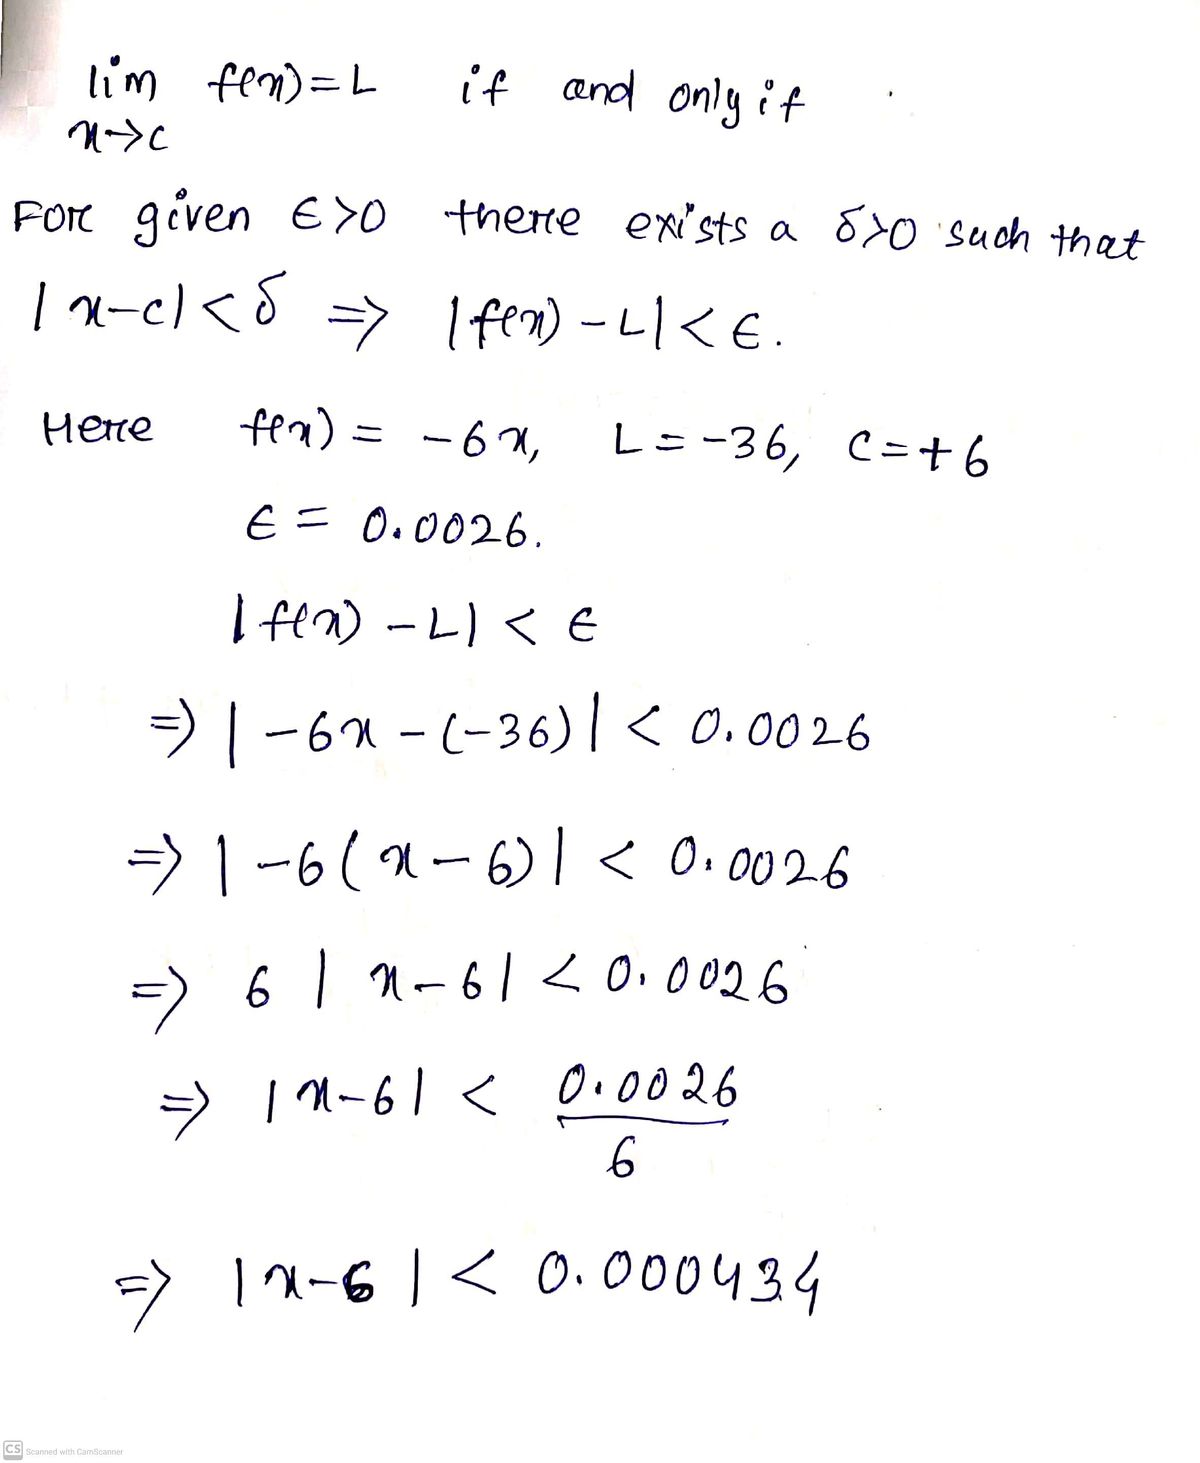 lim f(x) = L if and only if
x→c
For given ϵ>0 there exists a δ>0 such that
|x-c| < δ ⇒ |f(x) - L| < ϵ.
Here f(x) = -6x, L = -36, c = +6
ϵ = 0.0026.
|f(x) - L| < ϵ
⇒ |-6x - (-36)| < 0.0026
⇒ |-6(x-6)| < 0.0026
⇒ 6 |x-6| < 0.0026
⇒ |x-6| < 0.0026
6
⇒ |x-6| < 0.000434
CS Scanned with CamScanner